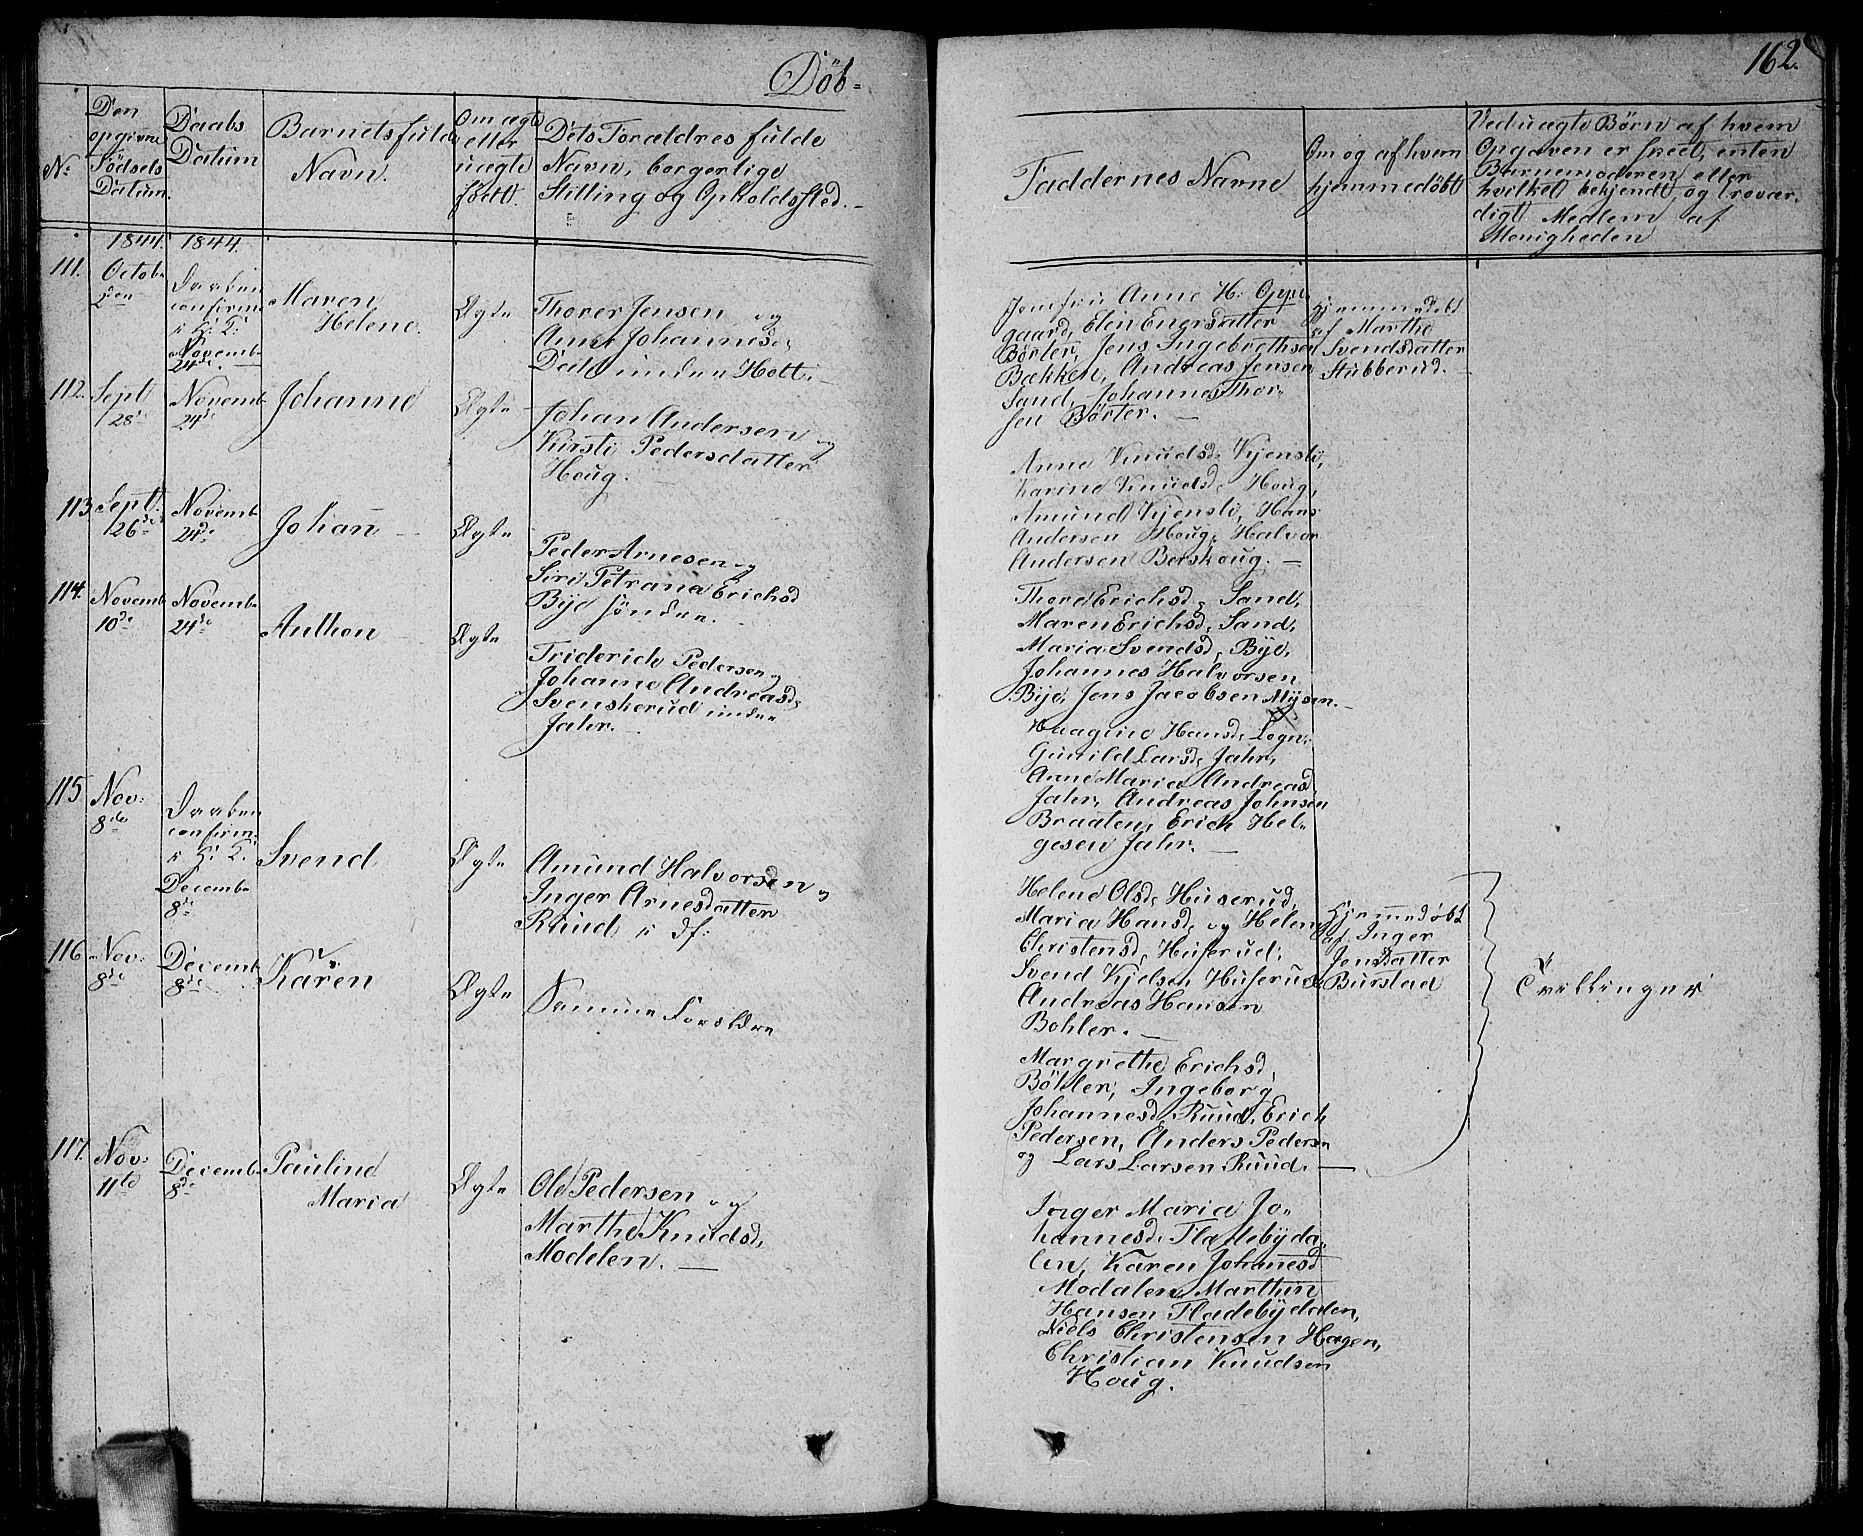 Döb-
162.
N:
Den
opgivne
Födsels
Datum.
Daabs
Datum
Barnets fulde
Navn.
Om ægte
eller
uægte
födt.
Dets Forældres fulde
Navn, borgerlige
Stilling og Opholdssted.
Faddernes Navne
Om og af hvem
hjemmedöbt
Ved uægte Börn af hvem
Opgaven er skeet, enten
Barnemoderen eller
hvilket bekjendt og trovær-
digt Medlem af
Menigheden
1844. 1844.
111.
Octob.
2den
Daaben
confirm.
i H: K:
Novemb.
24de
Maren
Helene.
Ægte
Thorer Jensen og
Anne Johannesd.
Dale under Hott.
Jomfrue Anne H: Oppe-
gaard, Elen Enersdatter
Börter, Jens Ingebrethsen
Bækken, Andreas Jensen
Sand, Johannes Thor-
sen Börter.
Hjemmedöbt
af Marthe
Svendsdatter
Stubberud.
112.
Sept
28de
Novemb.
24de
Johanne
Ægte
Johan Andersen og
Kirsti Pedersdatter
Houg.
Anne Knudsd. Kjensli,
Karine Knudsd. Houg,
Amund Kjensli, Hans
Andersen Houg, Halvor
Andersen Berskoug.
113
Sept.
26de
Novemb.
24de
Johan
Ægte
Peder Arnesen og
Siri Petrana Erichsd
Bye söndre.
Thore Erichsd, Sand,
Maren Erichsd, Sand,
Maria Svendsd, Bye,
Johannes Halvorsen
Bye, Jens Jacobsen Mysen.
114.
Novemb.
10de
Novemb.
24de
Anthon
Ægte
Friderich Pedersen og
Johanne Andreasd.
Svenskerud under
Jahr.
Haagine Hansd.
Gunild Larsd, Jahr,
Anne Maria Andreasd
Jahr, Andreas Johnsen
Braaten, Erich Hel-
gesen Jahr.
115
Nov:
8de
Daaben
confirm.
i H: K:
Decemb.
8de
Svend
Ægte
Amund Halvorsen og
Inger Arnesdatter
Ruud, i df:
Helene Olsd, Huserud,
Maria Hansd, og Helene
Christensd, Huserud,
Svend Kjelsen Huserud,
Andreas Hansen
Bohler.
Hjemmedöbt
af Inger
Jensdatter
Burstad
Tvillinger
116
Nov:
8de
Decemb.
8de
Karen
Ægte
Samme Forældre
Margrethe Erichsd,
Böhler, Ingeborg
Johannesd, Ruud, Erich
Pedersen, Anders Peders.
og Lars Larsen Ruud.
117.
Nov:
11te
Decemb.
8de
Pauline
Maria
Ægte
Ole Pedersen og
Marthe Knudsd,
Modelen.
Inger Maria Jo-
hannesd. Fladebyda-
len, Karen Johanesd
Modalen, Marthin
Hansen Fladebydalen,
Niels Christensen Hagen,
Christian Knudsen
Houg.